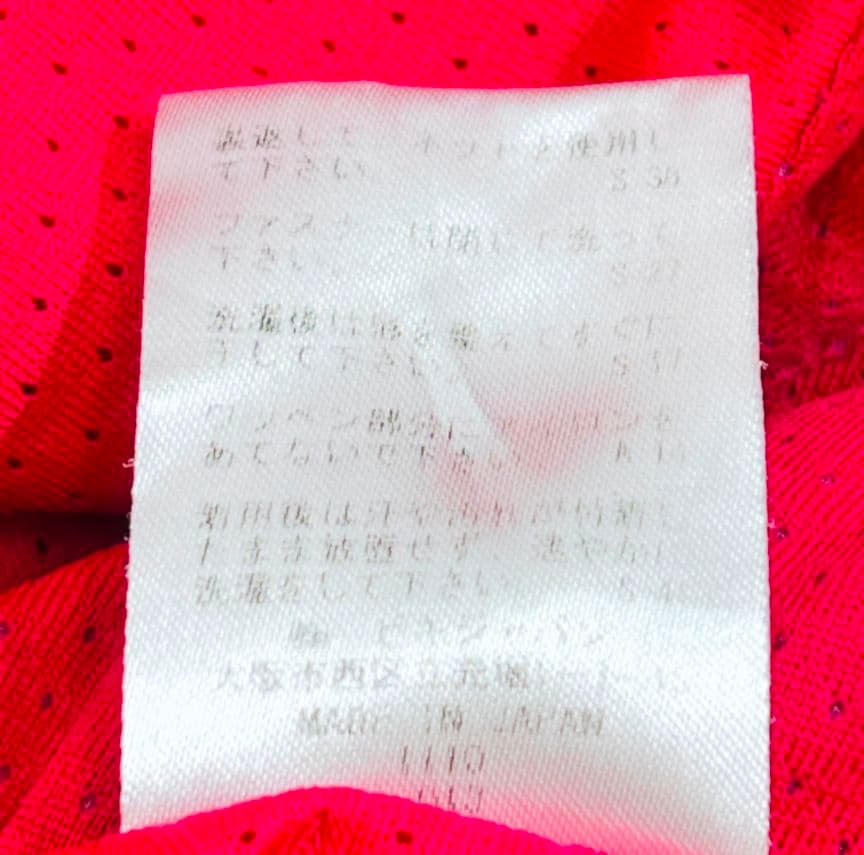 裏返して ネットを使用し
て下さい S 38
ファスナーは閉じて洗って
下さい S 27
洗濯後は形を整えてすぐに
干して下さい S 17
ワッペン部分にアイロンを
あてないで下さい A
着用後は汗や汚れが付着し
たまま放置せず、速やかに
洗濯をして下さい
大阪市西区立売堀
MADE IN JAPAN